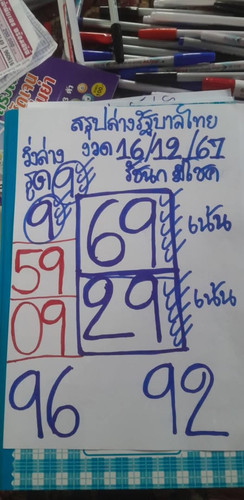 สรุปล่างรัฐบาลไทย
วิ่งล่าง งวด 16/12/67
รูด 9 รัชนก มีโชค
9 69 เน้น
59
09 29 เน้น
96 92